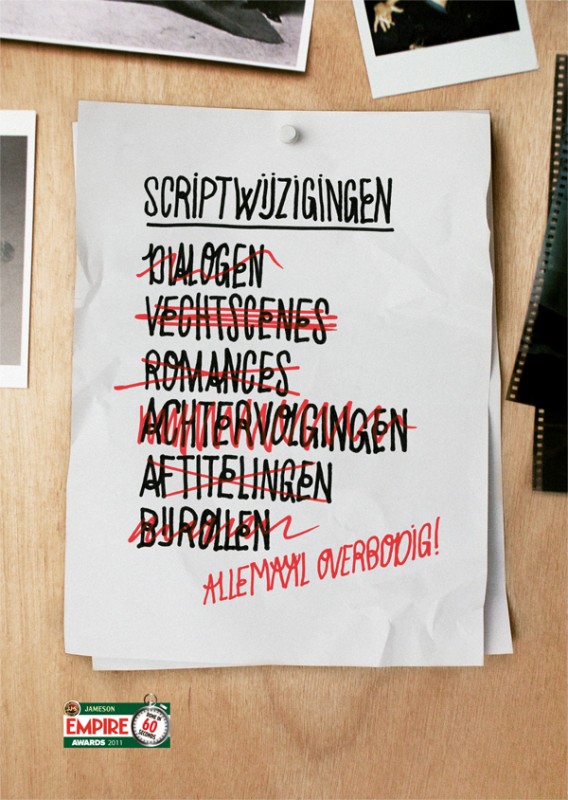 SCRIPTWIJZIGINGEN
DIALOGEN
VECHTSCENES
ROMANCES
ACHTERVOLGINGEN
AFTITELINGEN
BIJROLLEN
ALLEMAAL OVERBODIG!
JAMESON
EMPIRE
AWARDS 2011
DONE IN
60
SECONDS